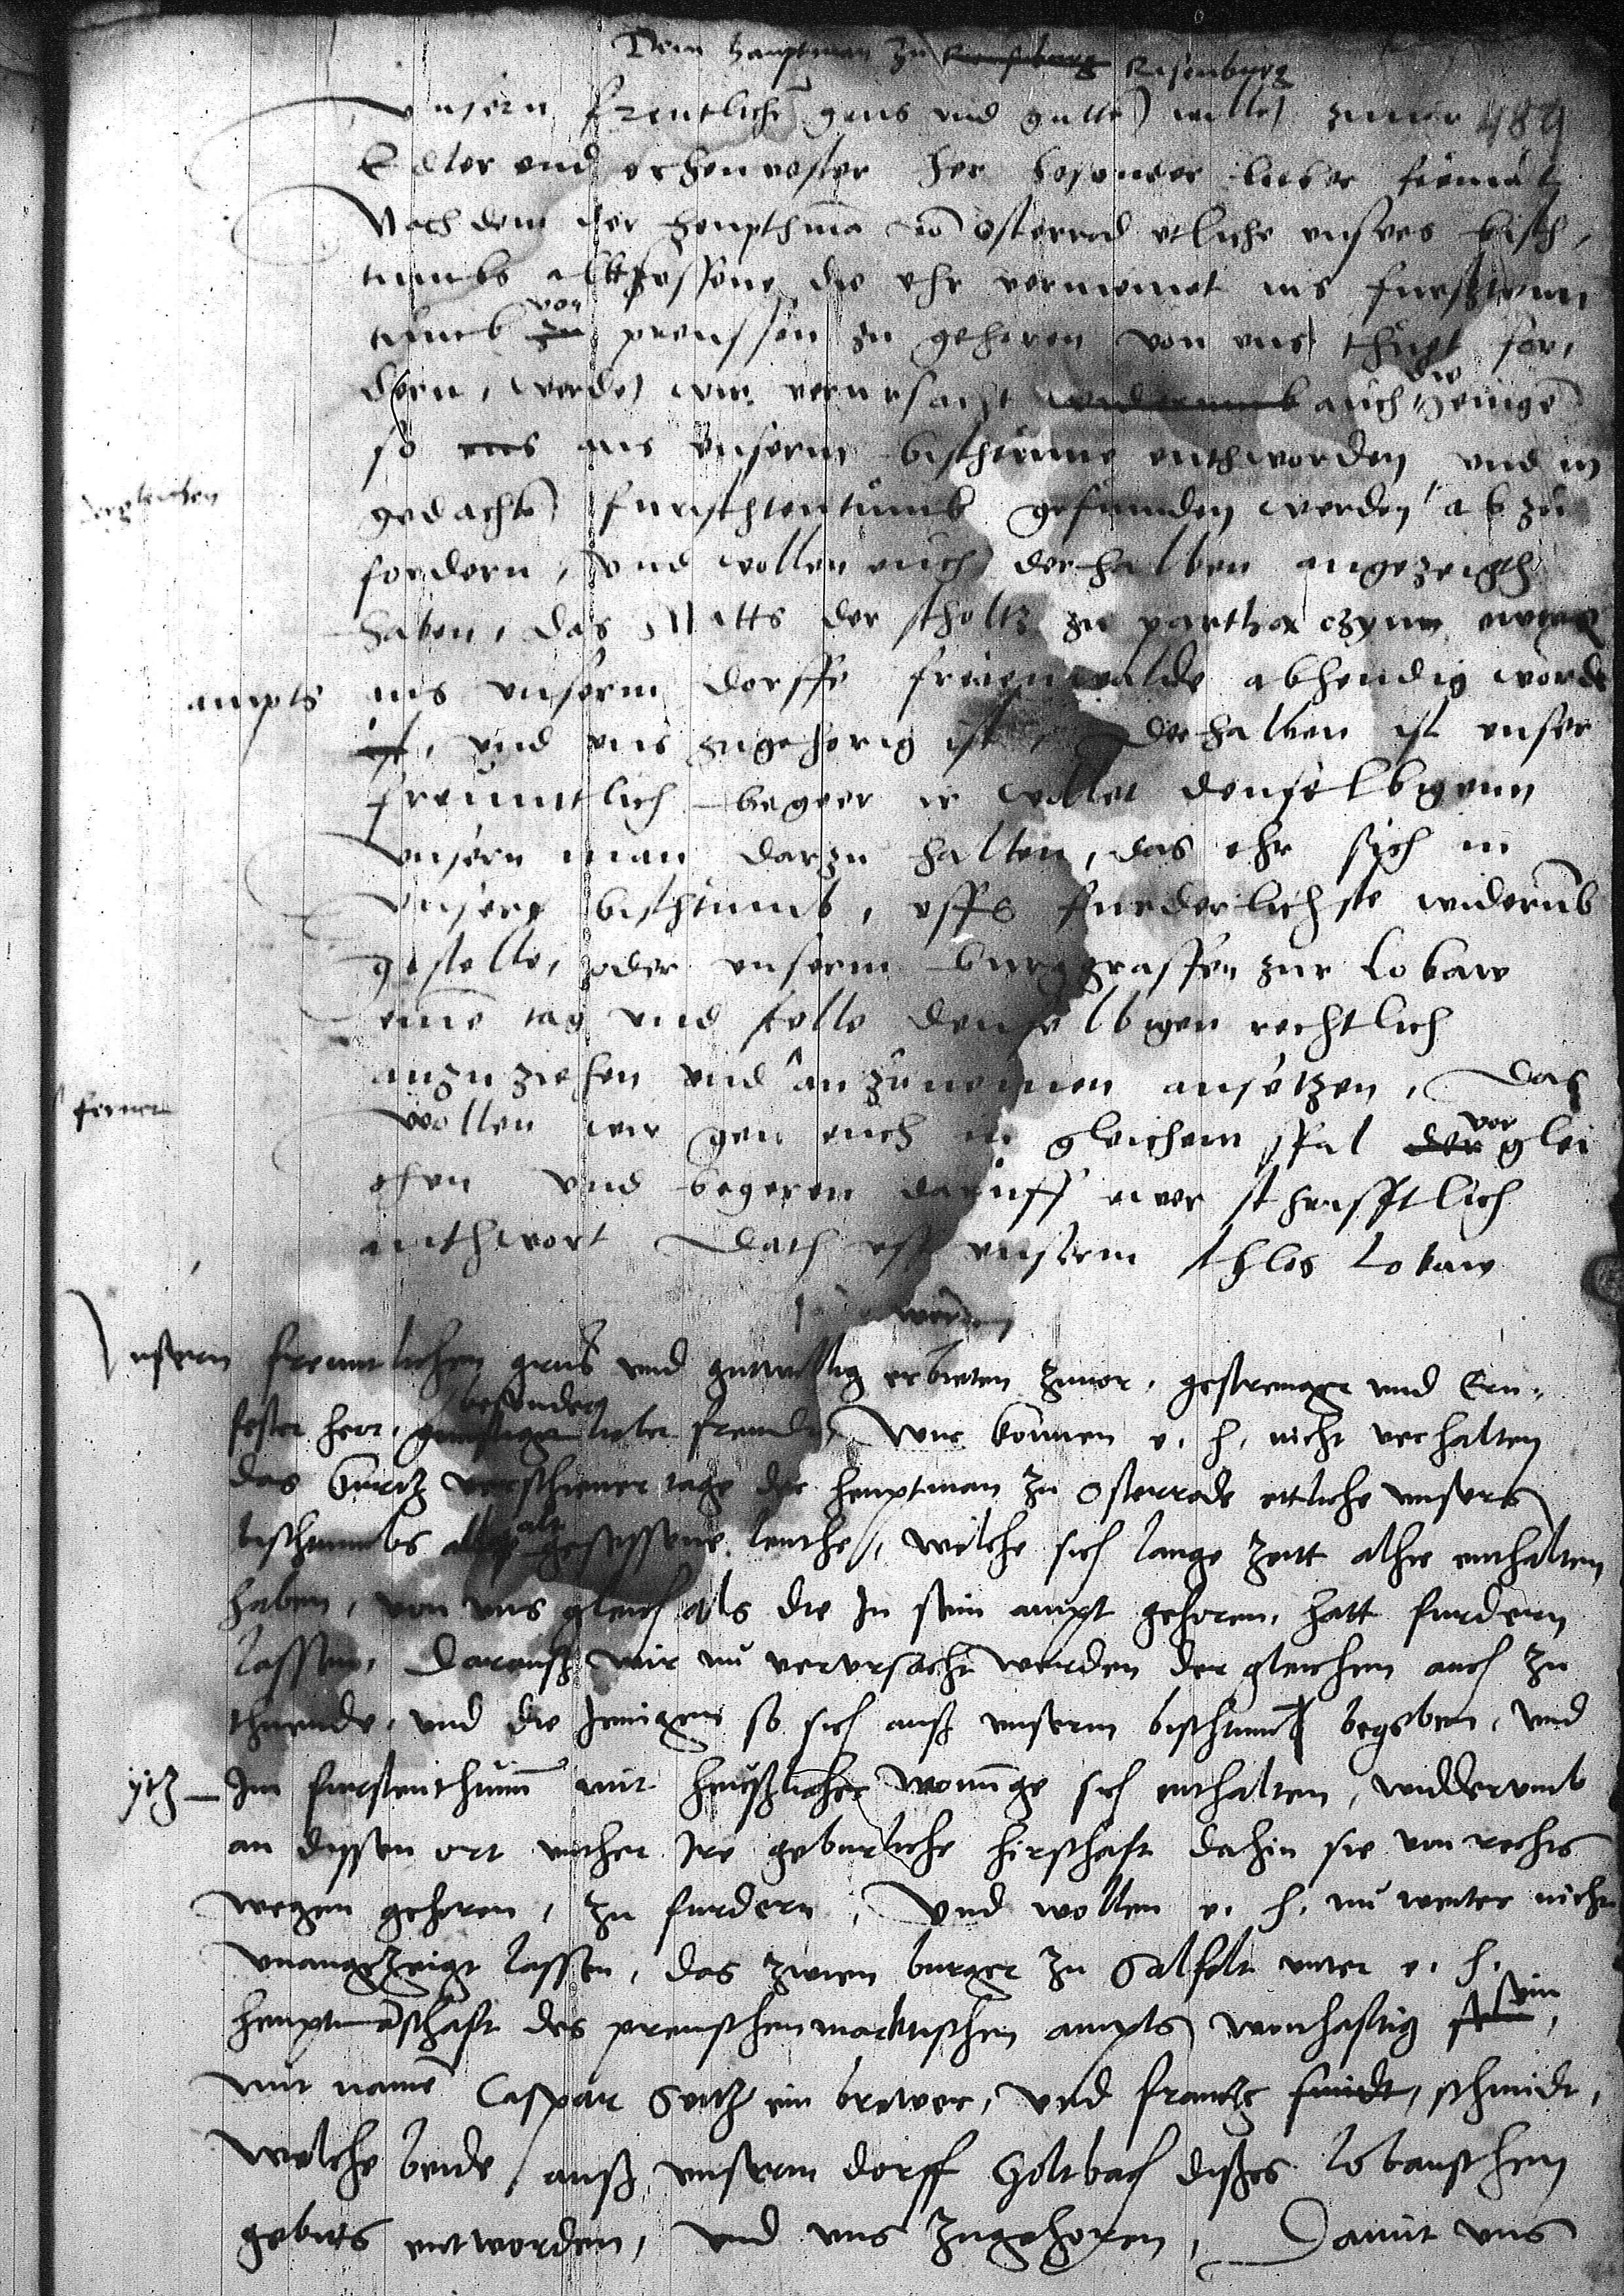 Dem hauptman zu Risenburg
489
Unsern freuntlichen grus und gutten willen zuuor
Edler und erhenvester her besonder lieber freundt
Nach dem der heupthman von Osterrod etliche unsers bisch,
tumbs altgesessene die ehr vermeinet ins fursten
tumb von preussen zu gehoren von uns thut for,
dern, werden wir verursacht auch die jenigen
so aus unserm bisthumb enthworden und in
dergleichen
gedachtem furschtentumb gefunden werden abzu
fordern, Und wollen euch derhalben angezeigth
haben, das Matts der scholtz zu ewers
ampts aus unserm dorffe freienwalde abhendig worden
ist, und uns zugehorig ist, Derhalben ist unser
freuntlich begeer ir wollet denselbigenn
unsern man darzu halten, das ehr sich in
unsere bisthumb, uffs furderlichste widerumb
gestelle, oder unserm burggraffen zur Lobaw
eine tag und stelle denselbigen rechtlich
anzuziehen und anzunemen ansetzen, Das
ferner
wollen wir gen euch in gleichem fal vor glei
chen und begeren daruff ewer schrifftlich
anthwort Dath uff unserm schlos Lobaw
werden
Unsern freuntlichen grus und gutwillig erbieten zuuor, gestrenger und Ern-
fester herr, besonder lieber freundt, Wir konnen e. h. nicht verhalten
das kurtz verschiener tage der heuptman zu Osterrode ettliche unsers
bischtumbs alt gesessene leuthe, welche sich lange zeitt alhie enthalten
haben, von uns gleich als die In sein ampt gehoren, hatt furdern
lassen, Darauß wir nu verursacht werden der gleichen auch zu
thuende, und die Jenigen so sich auß unserm bischtumb begeben, und
ytz Im furstenthumb mit heußlicher wonunge sich enthalten, widderumb
an dyssen ort unther Ire geburliche hirschaft dahin sie von rechts
wegen gehoren, zu furdern, Und wollen e. h. nu weiter nicht
unangezeigt lassen, das zwen burger zu Salfelt unter e. h.
heuptmanschaft des preuschenmarktischen ampts wonhaftig sein,
mit namen Caspar ein brewer, und frantz schmidt,
welche beide auß unserm dorff Goltbach dißes lobauschen
gebits entworden, und uns zugehoren, Damit uns